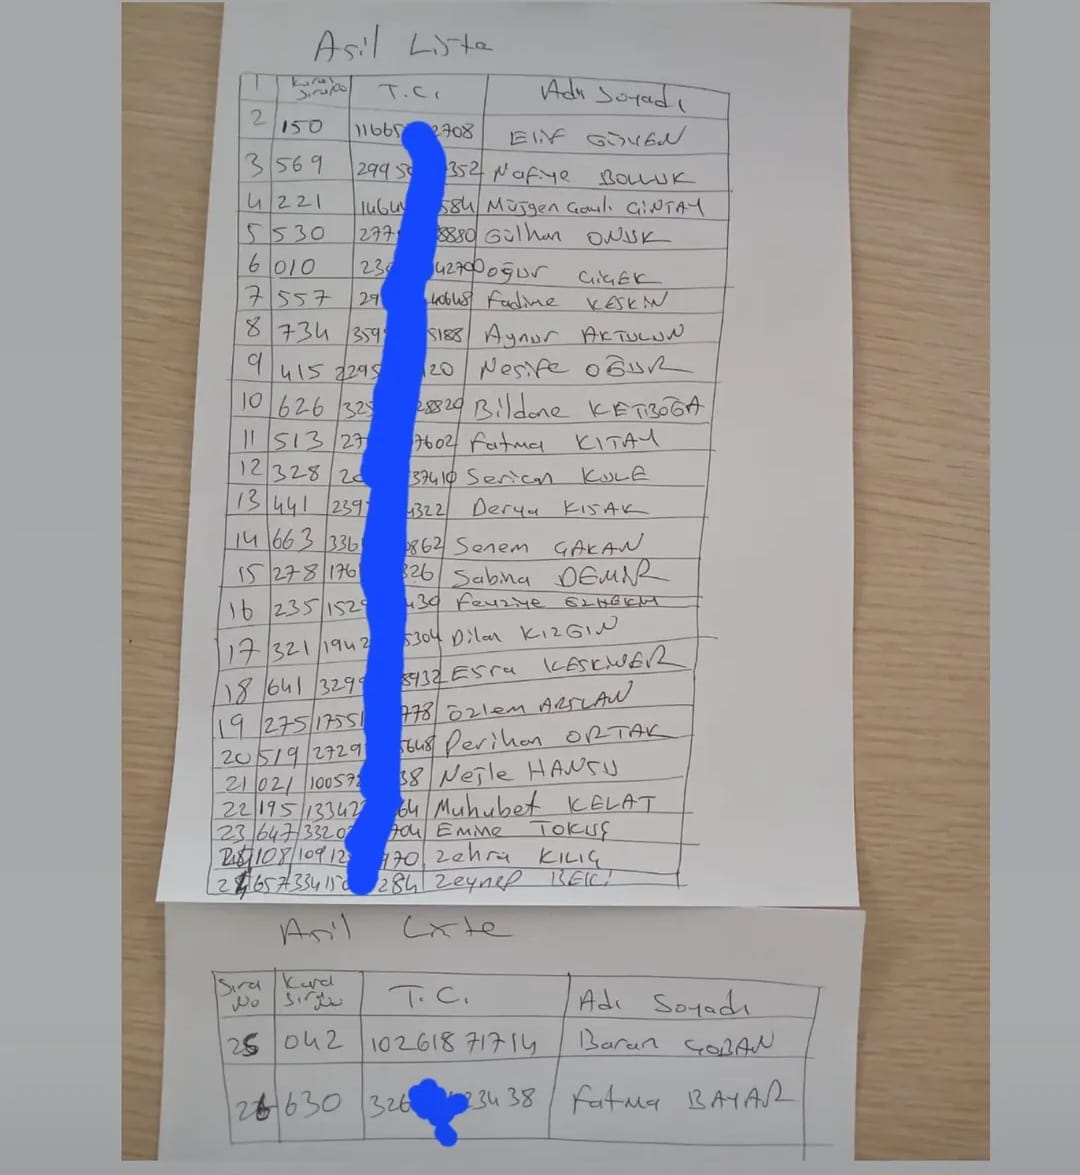 Asil Liste
1 Kura Sıra No T.C. Adı Soyadı
2 150 11665 2708 Elif GÜVEN
3 569 2995 352 Nafiye BOLLUK
4 221 1464 584 Müjgen GİNTAY
5 530 277 8880 Gülhan
6 010 23 4270 Doğur ÇİÇEK
7 557 29 40648 Fadime KESKİN
8 734 359 5188 Aynur AKTULUN
9 415 2295 120 Nesife OĞUR
10 626 325 28820 Bildane KETBOĞA
11 513 27 7602 Fatma KITAY
12 328 20 37410 Serican KULE
13 441 239 4322 Derya KISAK
14 663 336 0862 Senem ÇAKAN
15 278 176 326 Sabiha DEMİR
16 235 152 430 Fevziye
17 321 1942 5304 Dilan KIZGIN
18 641 329 8932 Esra KESKİNER
19 275 1755 778 Özlem ARSLAN
20 519 2729 5648 Perihan ORTAK
21 021 10057 38 Nejle HANSU
22 195 13342 64 Muhubet KELAT
23 647 3320 704 Emine TOKUŞ
108 109 12 970 Zehra KILIÇ
657 33415 284 Zeynep
Asil Liste
Sıra No Kura Sıra No T.C. Adı Soyadı
25 042 10261871714 Baran ÇOBAN
26 630 326 23438 Fatma BAYAR